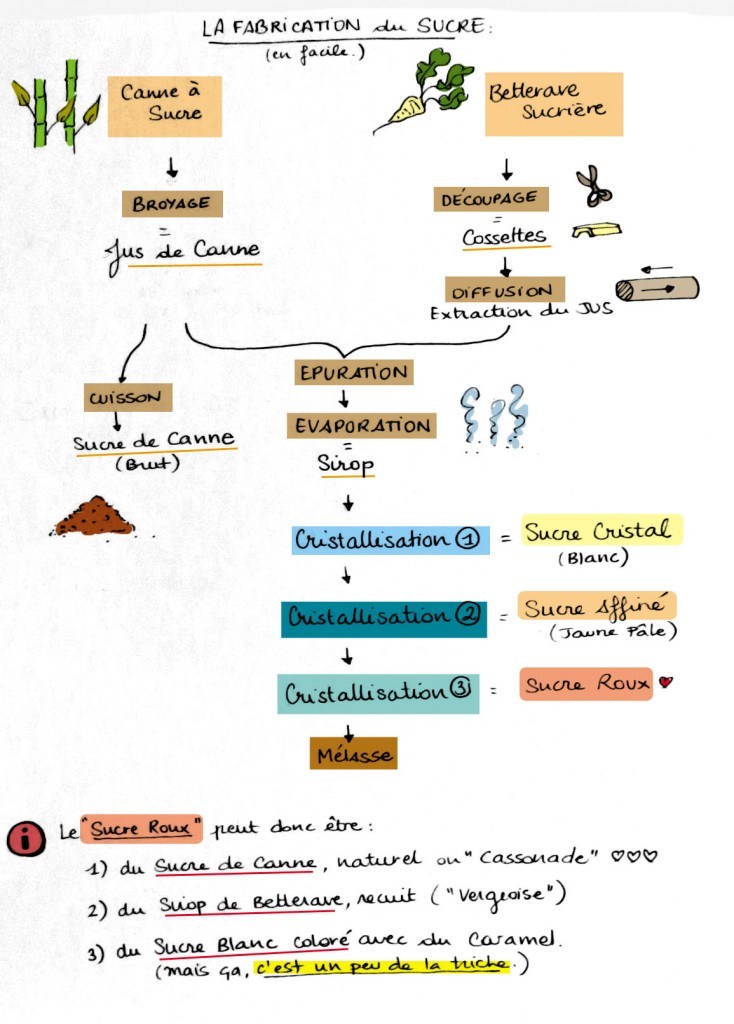 LA FABRICATION du SUCRE :
(en facile.)
Canne à
Sucre
Betterave
Sucrière
BROYAGE
=
Jus de Canne
DÉCOUPAGE
=
Cossettes
DIFFUSION
Extraction du JUS
CUISSON
Sucre de Canne
(Brut)
EPURATION
EVAPORATION
=
Sirop
Cristallisation 1 = Sucre Cristal
(Blanc)
Cristallisation 2 = Sucre Affiné
(Jaune Pâle)
Cristallisation 3 = Sucre Roux ♥
Mélasse
i
Le "Sucre Roux" peut donc être :
1) du Sucre de Canne, naturel ou "Cassonade" ♡♡♡
2) du Sirop de Betterave, recuit ("Vergeoise")
3) du Sucre Blanc coloré avec du Caramel.
(mais ça, c'est un peu de la triche.)